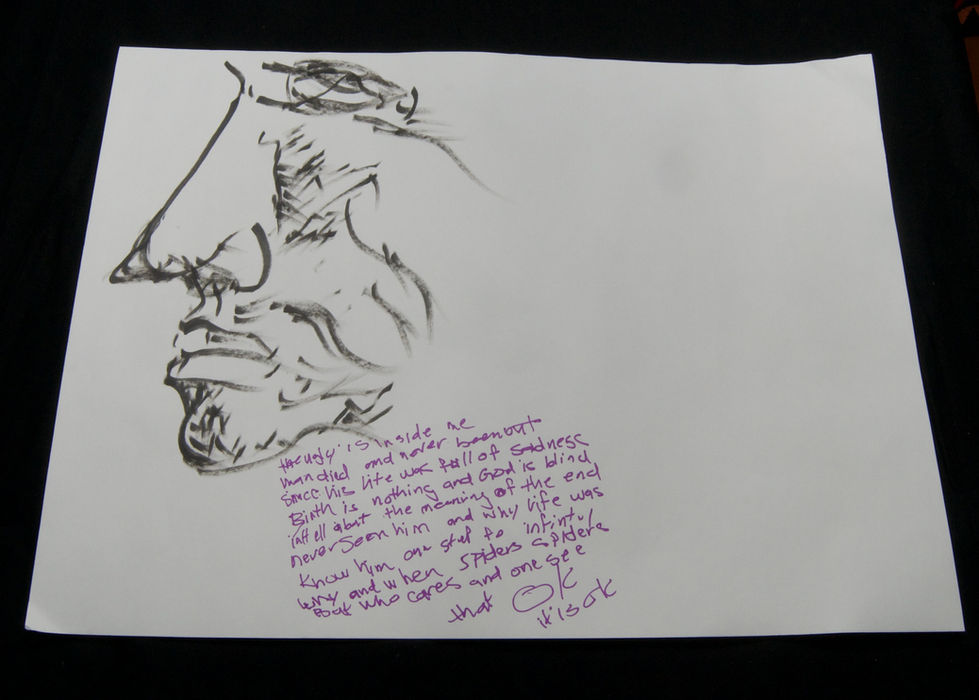 the ugly is inside me
man died and never been out
since his life was full of sadness
Birth is nothing and God is blind
tell about the meaning of the end
never seen him and why life was
know him one step to infinity
why and when spiders spiders
But who cares and one see
that OK
it is ok